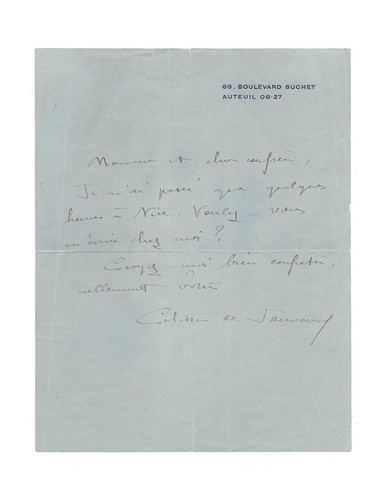 69. BOULEVARD SUCHET
AUTEUIL 06-27
Monsieur et cher confrère,
Je n'ai passé que quelques
heures à Nice. Voulez-vous
m'écrire chez moi ?
Croyez-moi bien confrater-
nellement vôtre
Colette de Jouvenel